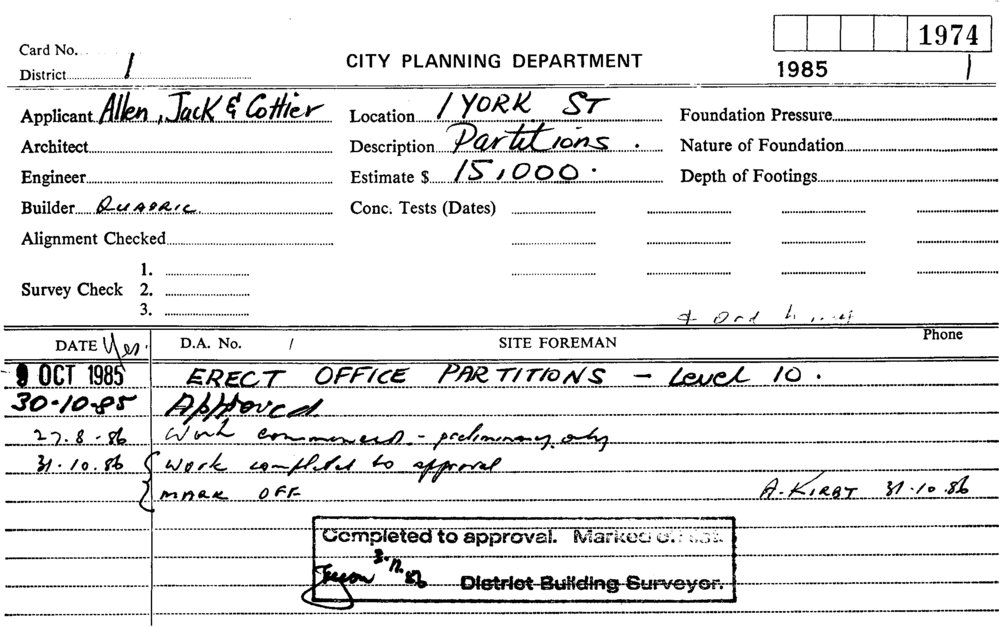 1974
Card No.
CITY PLANNING DEPARTMENT
1985 1
District 1
Applicant Allen, Jack & Cottier Location 1 YORK ST Foundation Pressure
Architect Description Partitions. Nature of Foundation
Engineer Estimate $ 15,000. Depth of Footings
Builder QUADRIC Conc. Tests (Dates)
Alignment Checked
1.
Survey Check 2.
3.
DATE Yes. D.A. No. / SITE FOREMAN Phone
9 OCT 1985 ERECT OFFICE PARTITIONS - Level 10.
30-10-85 Approved
27.8.86 Work commenced - preliminary only
31.10.86 Work completed to approval
MARK OFF A. KIRBY 31.10.86
Completed to approval. Marked off
3.12.86
District Building Surveyor.